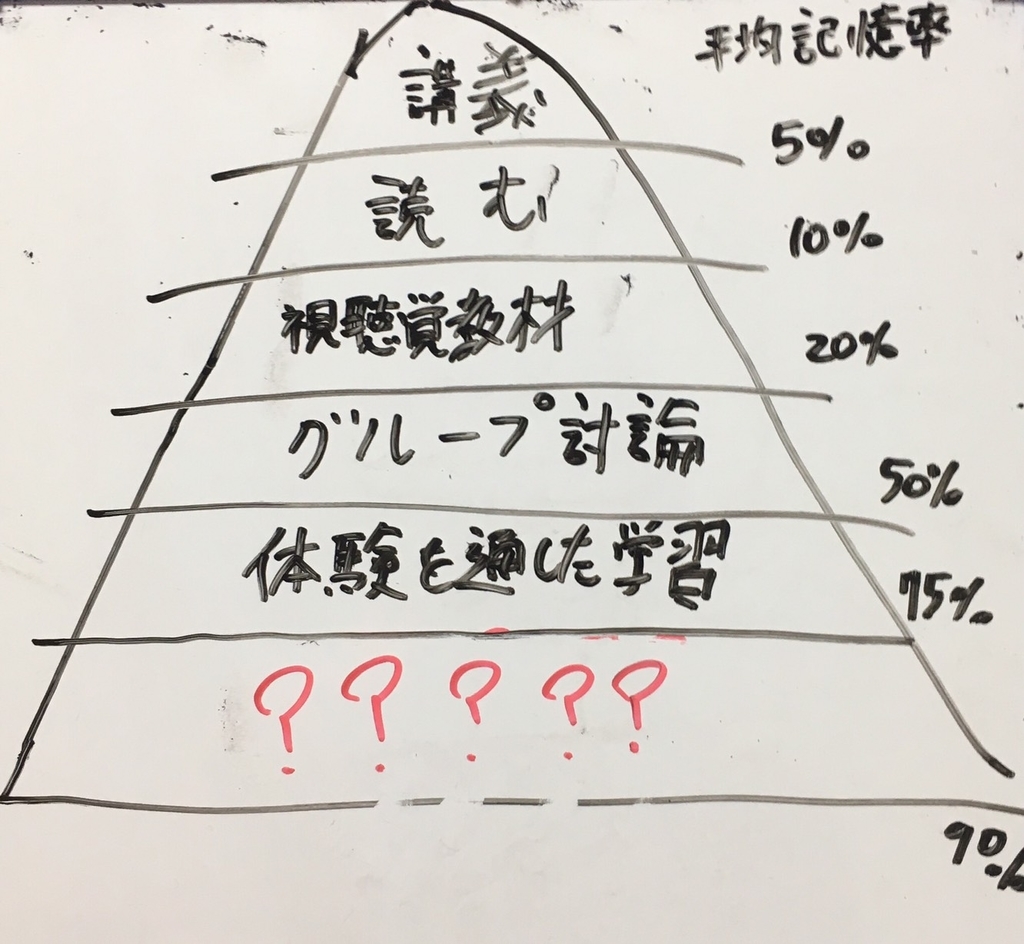 平均記憶率
講義
5%
読む
10%
視聴覚教材
20%
グループ討論
50%
体験を通した学習
75%
? ? ? ? ?
90%